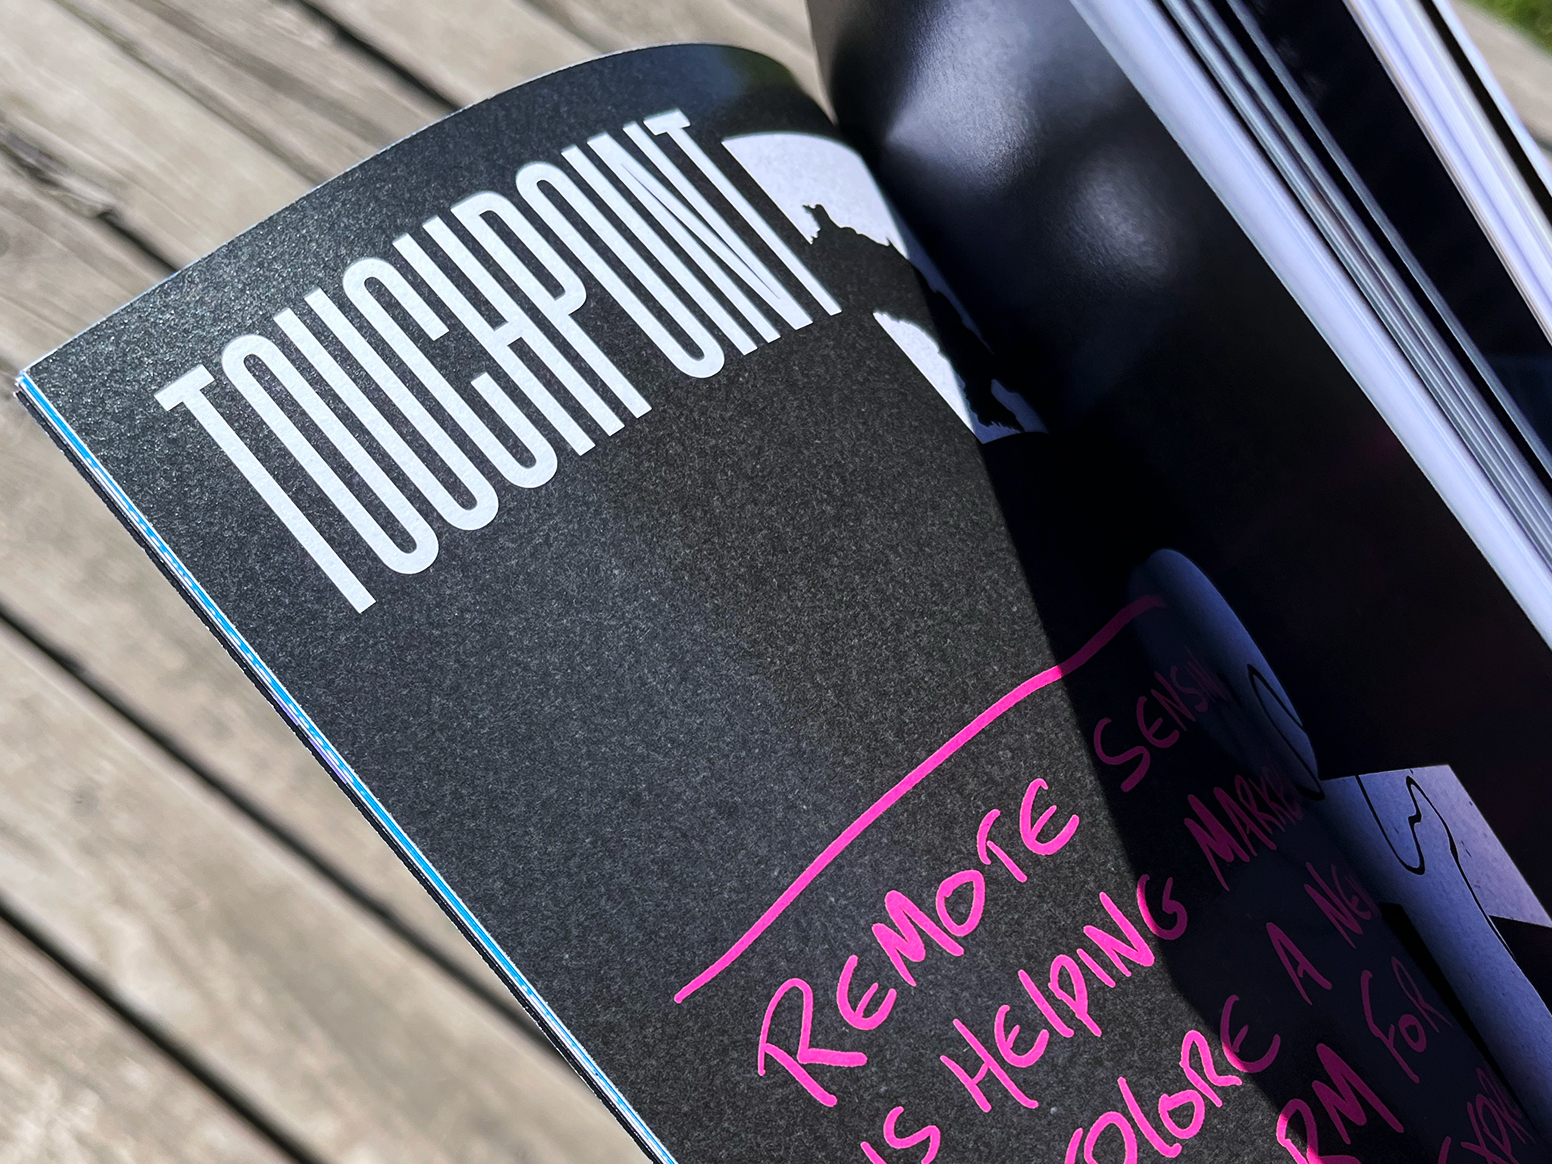 TOUCHPOINT
REMOTE SENSIN
IS HELPING MARK
XPLORE A NEW
RM FOR
EXPR